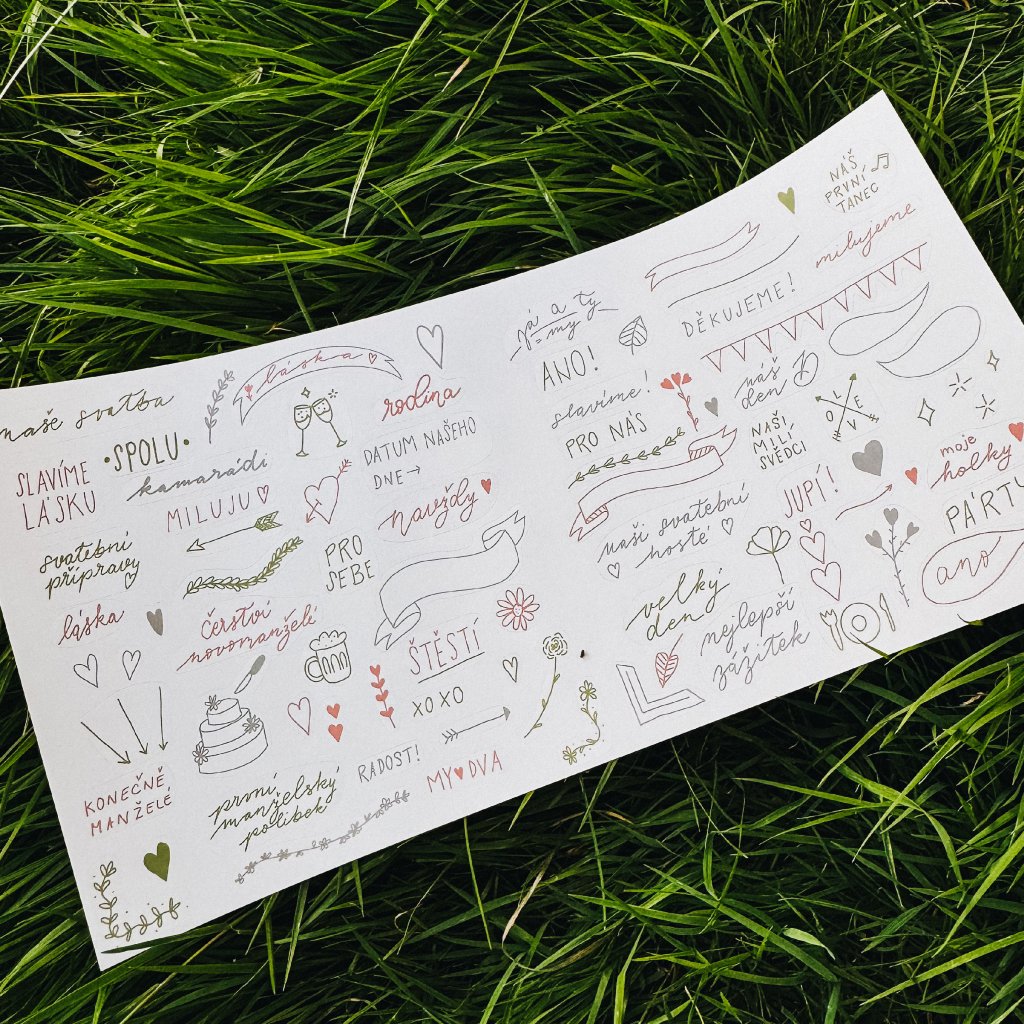 naše svatba
láska
rodina
SPOLU
SLAVÍME
LÁSKU
kamarádi
DATUM NAŠEHO
DNE
MILUJU
navždy
svatební
přípravy
PRO
SEBE
láska
čerství
novomanželé
ŠTĚSTÍ
XOXO
KONEČNĚ
MANŽELÉ
první
manželský
polibek
RADOST!
MY DVA
já a ty
= my
ANO!
NÁŠ
PRVNÍ
TANEC
milujeme
DĚKUJEME!
slavíme!
náš
den D
PRO NÁS
NAŠI
MILÍ
SVĚDCI
L O V E
moje
holky
naši svatební
hosté
JUPÍ!
PÁRTY
velký
den
nejlepší
zážitek
ano